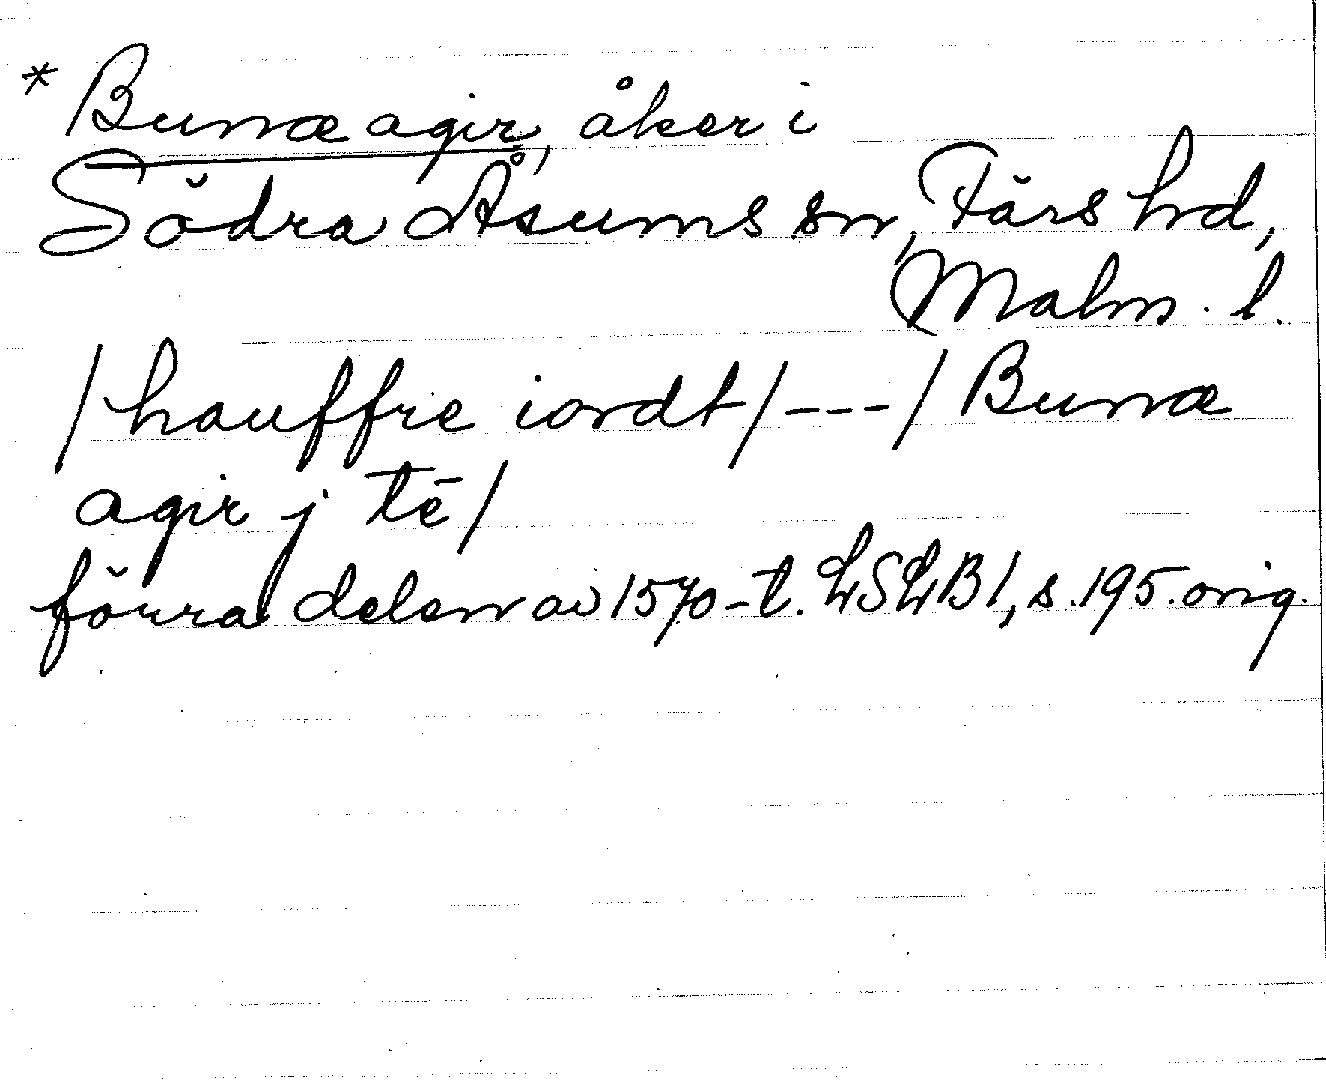 * Bunæ agir, åker i
Södra Åsums sn, Färs hd,
Malm. l.
/hauffre iordt/---/ Bunæ
agir j tē/
förra delen av 1570-t. LSLB1, s. 195. orig.